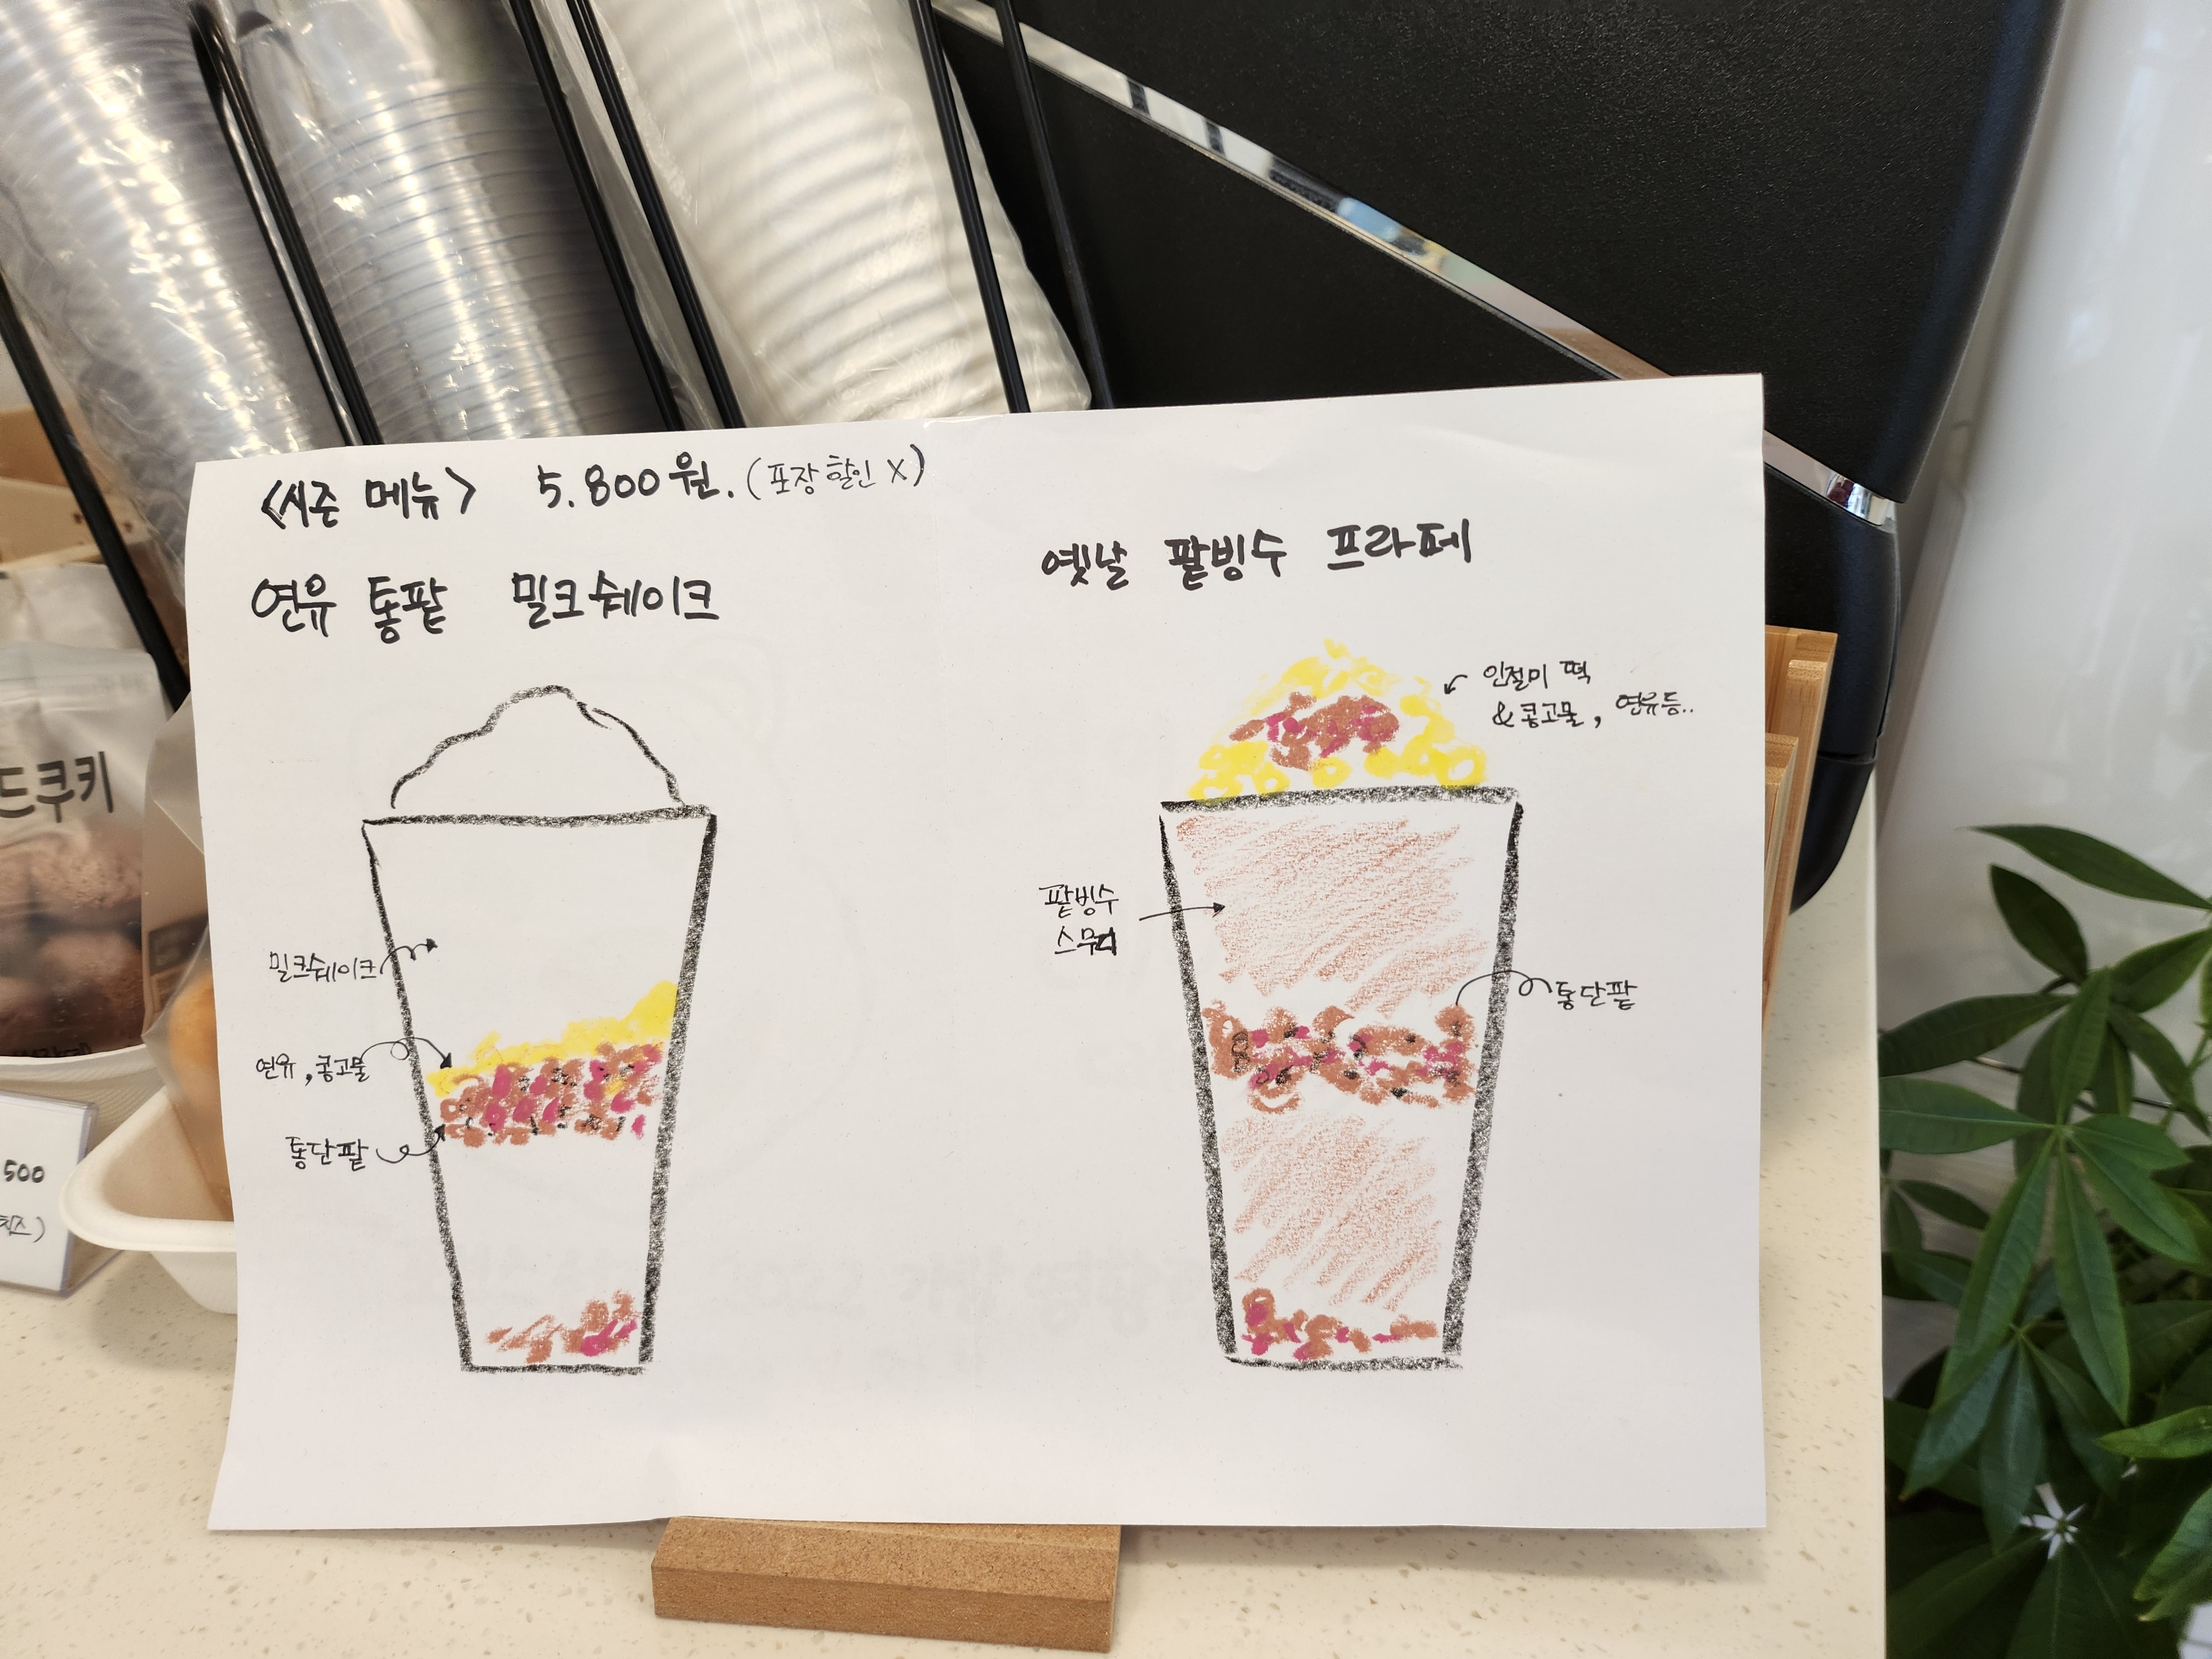 <시즌 메뉴> 5.800원. (포장 할인 X)
연유 통팥 밀크쉐이크
옛날 팥빙수 프라페
인절미 떡
& 콩고물, 연유등..
밀크쉐이크
연유, 콩고물
통단팥
팥빙수
스무디
통단팥
드쿠키
500